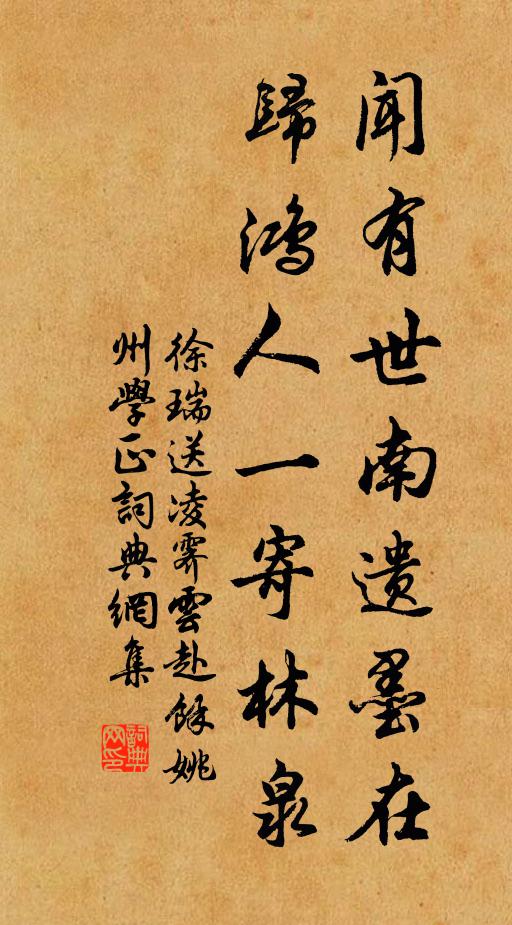 闻有世南遗墨在
歸鴻人一寄林泉
徐瑞送凌霁雲赴餘姚
州學正詞典網集
詞典網印